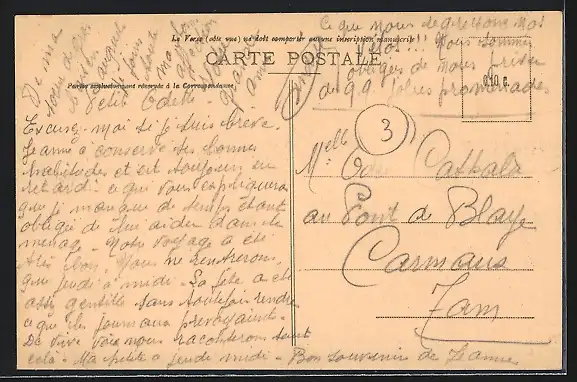 Ce que nous dégustons moi
Le Verso (côté vue) ne doit comporter aucune inscription manuscrite
Vélo!!! Nous sommes
CARTE POSTALE
obligés de nous priver
de qq. jolies promenades
Partie exclusivement réservée à la Correspondance.
De ma
Petite Odette
Excuse-moi si je suis brève.
Jeanne a conservé ses bonnes
habitudes et est toujours en
retard: ce qui vous expliquera
que je manque de temps étant
obligée de lui aider dans le
ménage. Notre voyage a été
très bon. Nous ne rentrerons
que jeudi à midi. La fête a été
assez gentille sans toutefois rendre
ce que les journaux prévoyaient.
De vive voix nous raconterons tout
cela. Ma petite à jeudi midi. Bon souvenir de Jeanne
3
0.10 c.
Melle Cathala
au Pont de Blaye
Carmaux
Tarn